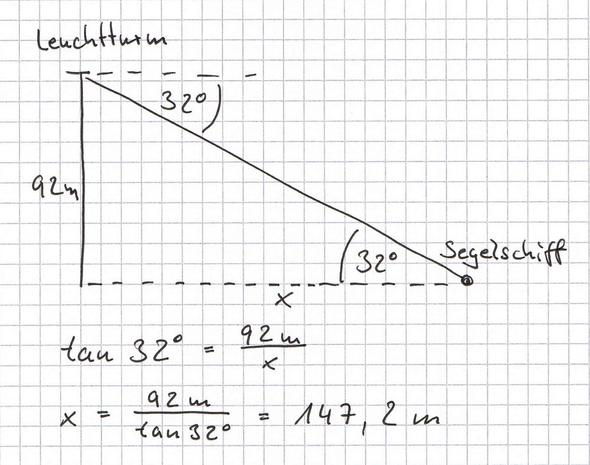 Leuchtturm
32°
92m
32°
Segelschiff
x
tan 32° = 92 m / x
x = 92 m / tan 32° = 147,2 m